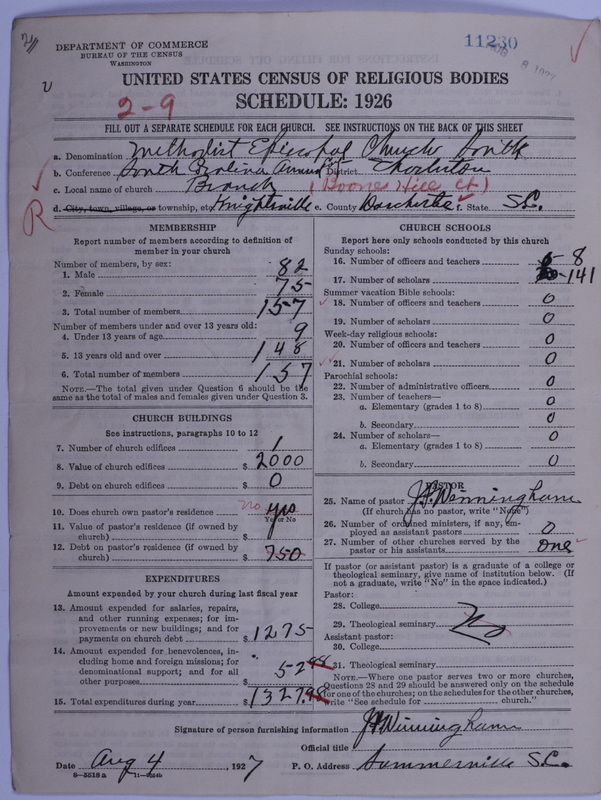 11230
DEPARTMENT OF COMMERCE
BUREAU OF THE CENSUS
WASHINGTON
UNITED STATES CENSUS OF RELIGIOUS BODIES
2-9
SCHEDULE: 1926
FILL OUT A SEPARATE SCHEDULE FOR EACH CHURCH. SEE INSTRUCTIONS ON THE BACK OF THIS SHEET
a. Denomination Methodist Episcopal Church South
b. Conference South Carolina Annual District Charleston
c. Local name of church Branch (Boone Hill Ct)
d. City, town, village, or township, etc. Knightsville e. County Dorchester f. State S.C.
R
MEMBERSHIP
Report number of members according to definition of
member in your church
Number of members, by sex:
1. Male 82
2. Female 75
3. Total number of members 157
Number of members under and over 13 years old:
4. Under 13 years of age 9
5. 13 years old and over 148
6. Total number of members 157
NOTE.—The total given under Question 6 should be the
same as the total of males and females given under Question 3.
CHURCH BUILDINGS
See instructions, paragraphs 10 to 12
7. Number of church edifices 1
8. Value of church edifices $ 2000
9. Debt on church edifices $ 0
10. Does church own pastor's residence no yes
Yes or No
11. Value of pastor's residence (if owned by
church) $
12. Debt on pastor's residence (if owned by
church) $ 750
EXPENDITURES
Amount expended by your church during last fiscal year
13. Amount expended for salaries, repairs,
and other running expenses; for im-
provements or new buildings; and for
payments on church debt $ 1275
14. Amount expended for benevolences, in-
cluding home and foreign missions; for
denominational support; and for all
other purposes $ 52.98
15. Total expenditures during year $ 1327.98
CHURCH SCHOOLS
Report here only schools conducted by this church
Sunday schools:
16. Number of officers and teachers 8
17. Number of scholars 141
Summer vacation Bible schools:
18. Number of officers and teachers 0
19. Number of scholars 0
Week-day religious schools:
20. Number of officers and teachers 0
21. Number of scholars 0
Parochial schools:
22. Number of administrative officers 0
23. Number of teachers—
a. Elementary (grades 1 to 8) 0
b. Secondary 0
24. Number of scholars—
a. Elementary (grades 1 to 8) 0
b. Secondary 0
PASTOR
25. Name of pastor J.P. Winningham
(If church has no pastor, write "None")
26. Number of ordained ministers, if any, em-
ployed as assistant pastors 0
27. Number of other churches served by the
pastor or his assistants one
If pastor (or assistant pastor) is a graduate of a college or
theological seminary, give name of institution below. (If
not a graduate, write "No" in the space indicated.)
Pastor:
28. College
29. Theological seminary No
Assistant pastor:
30. College
31. Theological seminary
NOTE.—Where one pastor serves two or more churches,
Questions 28 and 29 should be answered only on the schedule
for one of the churches; on the schedules for the other churches,
write "See schedule for church."
Signature of person furnishing information J.P. Winningham
Official title
Date Aug 4, 1927 P. O. Address Summerville S.C.